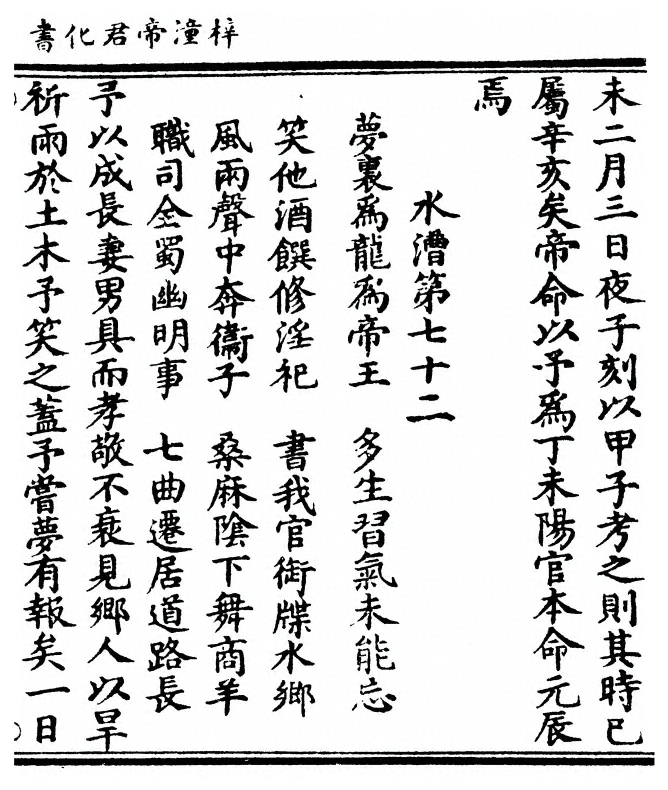 梓潼帝君化書
未二月三日夜子刻以甲子考之則其時已
屬辛亥矣帝命以予為丁未陽官本命元辰
焉
水漕第七十二
夢裏為龍為帝王　多生習氣未能忘
笑他酒饌修淫祀　書我官銜牒水鄉
風雨聲中奔衞子　桑麻陰下舞商羊
職司全蜀幽明事　七曲遷居道路長
予以成長妻男具而孝敬不衰見鄉人以旱
祈雨於土木予笑之蓋予嘗夢有報矣一日